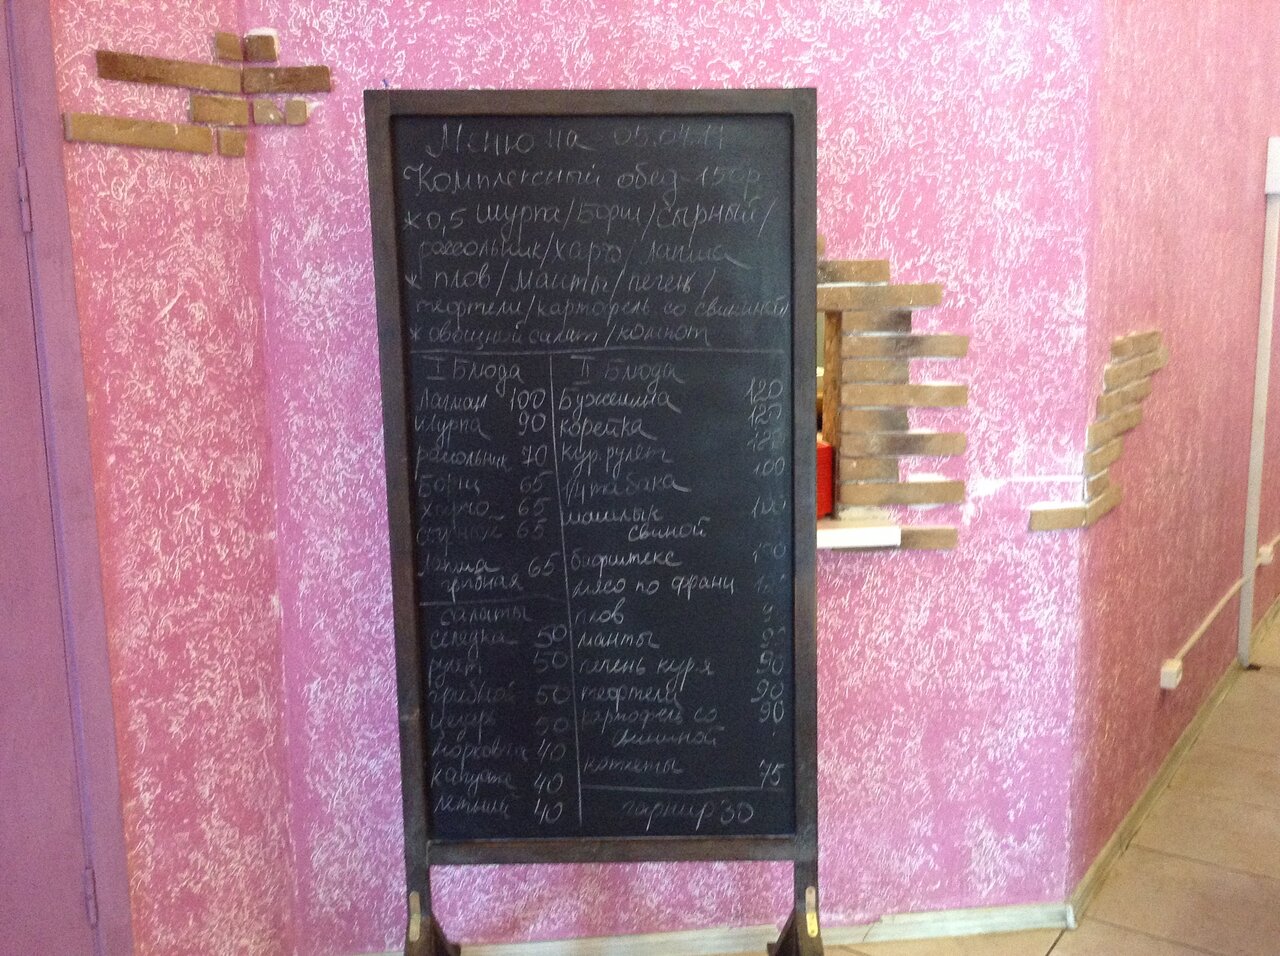 Меню на 05.04.11
Комплексный обед 150р
* 0,5 Шурпа/Борщ/Сырный/
рассольник/харчо/лапша
* плов/манты/печень/
тефтели/картофель со свининой
* овощной салат/компот
I Блюда
Лагман 100
шурпа 90
рассольник 70
Борщ 65
харчо 65
сырный 65
лапша 65
грибная
салаты
селедка 50
рулет 50
грибной 50
Цезарь 50
морковка 40
капуста 40
летний 40
II Блюда
Буженина 120
корейка 120
кур.рулет
табака 100
шашлык
свиной
бифштекс
мясо по франц
плов
манты
печень кур я
тефтели 90
картофель со 90
котлеты 75
гарнир 30